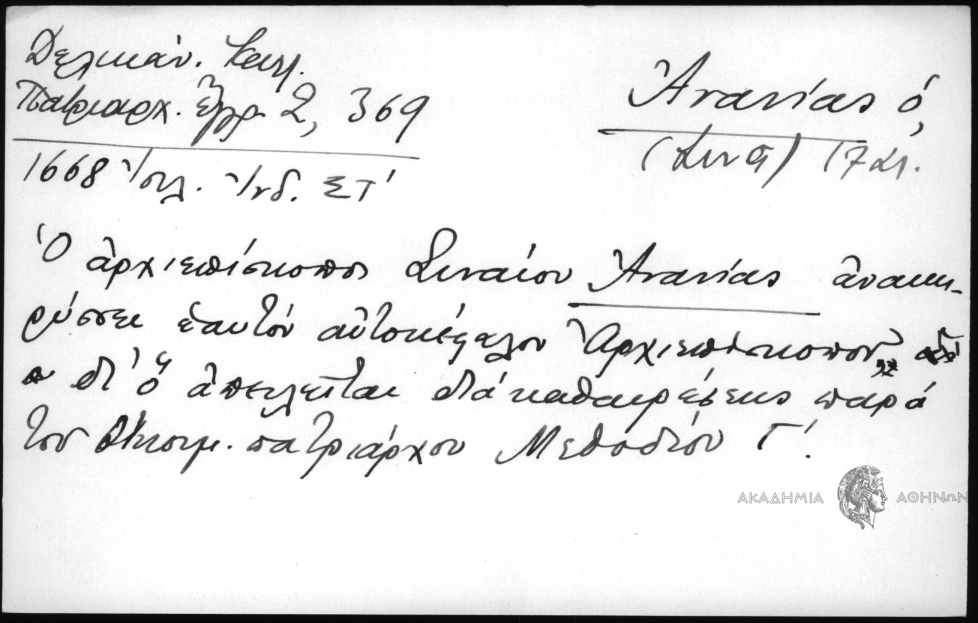 Δελικάν. Καλλ.
Πατριαρχ. Ἔγγρ. 2, 369
Ἀνανίας ὁ,
(Σινᾶ) 17 αἰ.
1668 Ἰουλ. Ἰνδ. ΣΤ'
Ὁ ἀρχιεπίσκοπος Σιναίου Ἀνανίας ἀνακη-
ρύσσει ἑαυτόν αὐτοκέφαλον Ἀρχιεπίσκοπον,
δι' ὃ ἀπειλεῖται διά καθαιρέσεως παρά
τοῦ Οἰκουμ. πατριάρχου Μεθοδίου Γ'.
ΑΚΑΔΗΜΙΑ ΑΘΗΝΩΝ